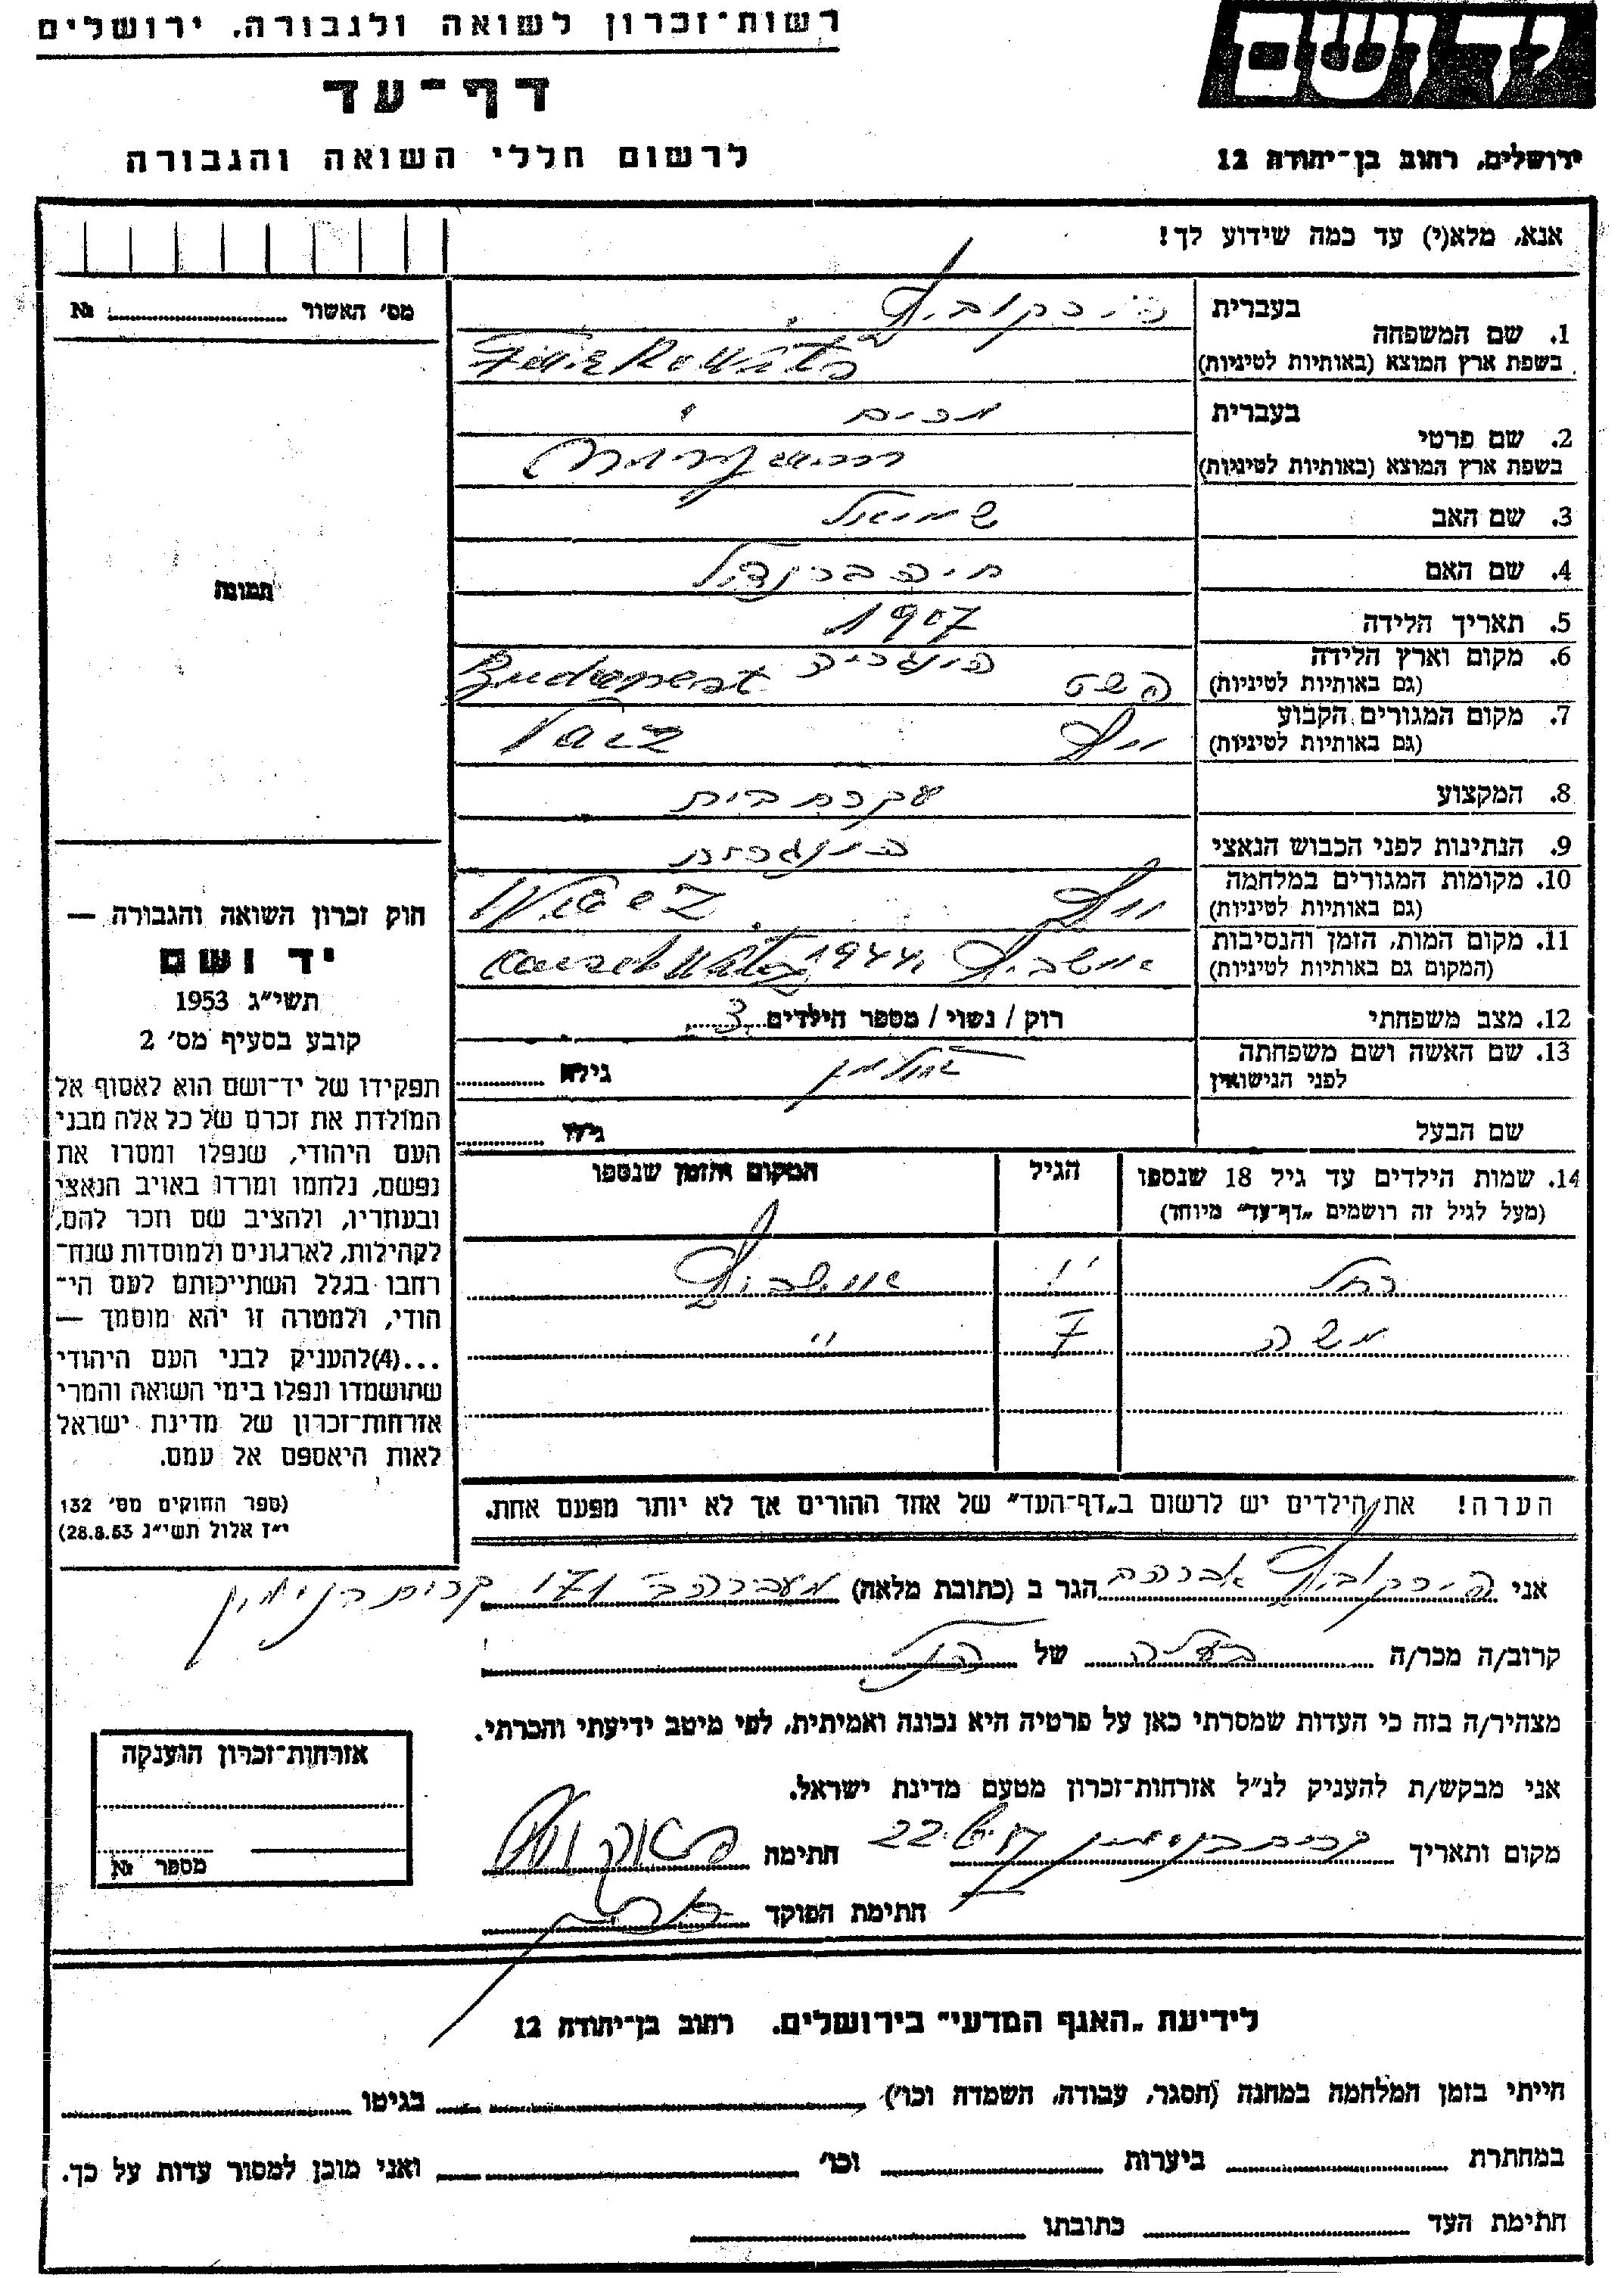 רשות־זכרון לשואה ולגבורה, ירושלים
דף־עד
לרשום חללי השואה והגבורה
ידושם
ירושלים, רחוב בן־יהודה 12
אנא, מלא(י) עד כמה שידוע לך!
מס' האשור № 
תמונה
1. שם המשפחה
בעברית
בשפת ארץ המוצא (באותיות לטיניות)
2. שם פרטי
בעברית מרים
בשפת ארץ המוצא (באותיות לטיניות) Mirjam
3. שם האב שמואל
4. שם האם חיה ברנדיל
5. תאריך הלידה 1907
6. מקום וארץ הלידה הונגריה Budapest
(גם באותיות לטיניות)
7. מקום המגורים הקבוע
(גם באותיות לטיניות)
8. המקצוע עקרת בית
9. הנתינות לפני הכבוש הנאצי הונגרית
10. מקומות המגורים במלחמה
(גם באותיות לטיניות)
11. מקום המות, הזמן והנסיבות אושביץ 1944
(המקום גם באותיות לטיניות)
12. מצב משפחתי רוק / נשוי / מספר הילדים 3
13. שם האשה ושם משפחתה
לפני הנישואין
גילה
שם הבעל
גילו
14. שמות הילדים עד גיל 18 שנספו
(מעל לגיל זה רושמים „דף־עד” מיוחד)
הגיל
המקום והזמן שנספו
רחל 11 אושביץ
משה 7 "
הערה! את הילדים יש לרשום ב„דף־העד” של אחד ההורים אך לא יותר מפעם אחת.
חוק זכרון השואה והגבורה —
יד ושם
תשי״ג 1953
קובע בסעיף מס' 2
תפקידו של יד־ושם הוא לאסוף אל
המולדת את זכרם של כל אלה מבני
העם היהודי, שנפלו ומסרו את
נפשם, נלחמו ומרדו באויב הנאצי
ובעוזריו, ולהציב שם וזכר להם,
לקהילות, לארגונים ולמוסדות שנח־
רחבו בגלל השתייכותם לעם הי־
הודי, ולמטרה זו יהא מוסמך —
...(4)להעניק לבני העם היהודי
שהושמדו ונפלו בימי השואה והמרי
אזרחות־זכרון של מדינת ישראל
לאות היאספם אל עמם.
(ספר החוקים מס' 132
י״ז אלול תשי״ג 28.8.53)
אני אברהם הגר ב (כתובת מלאה) 171
קרוב/ה מכר/ה בעלה של הנ״ל
מצהיר/ה בזה כי העדות שמסרתי כאן על פרטיה היא נכונה ואמיתית, לפי מיטב ידיעתי והכרתי.
אני מבקש/ת להעניק לנ״ל אזרחות־זכרון מטעם מדינת ישראל.
מקום ותאריך 22 חתימה
חתימת הפוקד
אזרחות־זכרון הוענקה
מספר №
לידיעת „האגף המדעי” בירושלים, רחוב בן־יהודה 12
חייתי בזמן המלחמה במחנה (הסגר, עבודה, השמדה וכו') בגיטו
במחתרת ביערות וכו' ואני מוכן למסור עדות על כך.
חתימת העד כתובתו